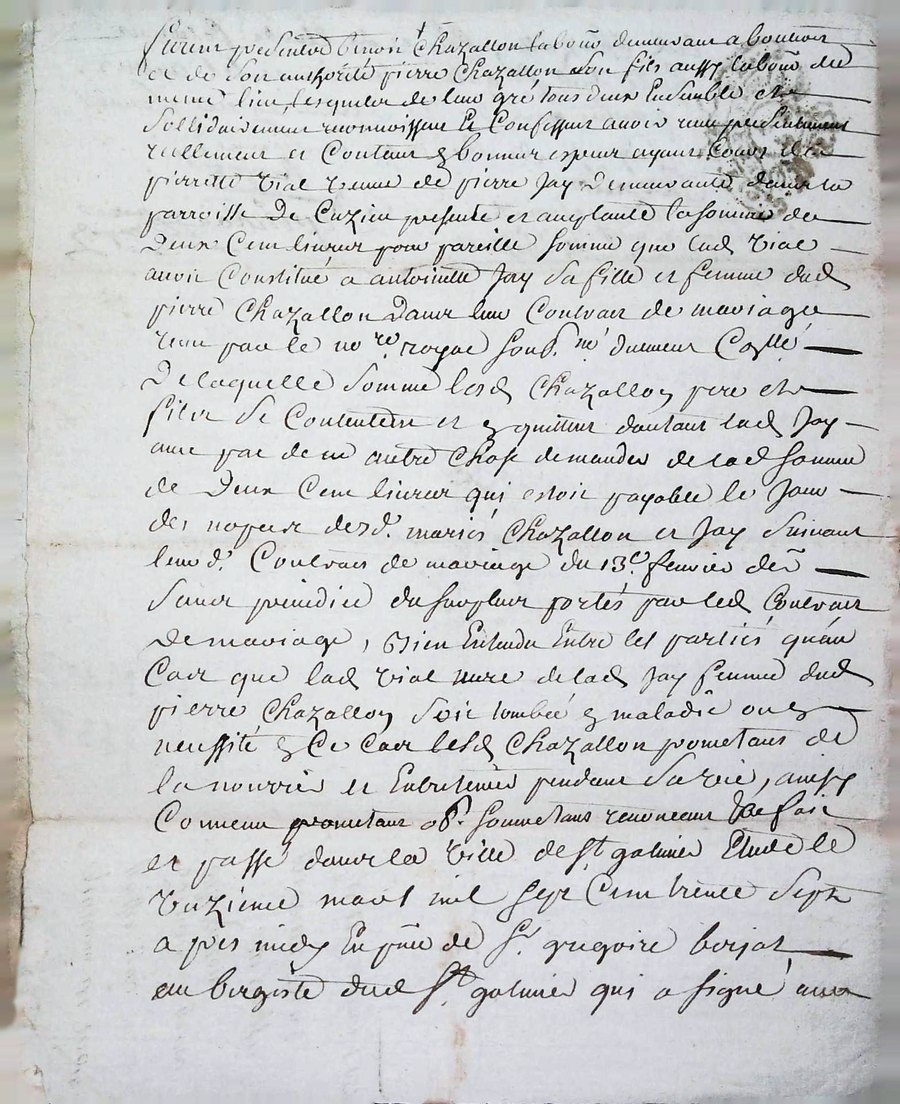 furent presents benoit Chazallon labour demeurant a bouttoir
et de son authorité pierre Chazallon son fils aussy labour du
meme lieu, lesquels de leur gré tous deux Ensemble et
sollidairement reconnoissent Et Confessent avoir reçu presentement
reellement et Contant en bonnes especes ayant Cours de
pierrette Vial Veuve de pierre Jay Demeurante dans la
parroisse De Cuzieu presente et acceptante la somme de
Deux Cent livres pour pareille somme que lad Vial
avoit Constitué a antoinette Jay sa fille et femme dud
pierre Chazallon Dans leur Contrat de mariage
reçu par le no.re royal sous.né duement Collé
De laquelle somme lesd Chazallon pere et
fils se Contentent et en quittent d'autant lad Jay
avec pac de ne autre Chose demander de lad somme
de Deux Cent livres qui estoit payable le Jour
des nopces desd. mariés Chazallon et Jay suivant
leurd. Contrat de mariage du 13e fevrier der
sans prejudice du surplus portés par led Contrat
de mariage, Bien Entendu Entre les partiés qu'au
Cas que lad Vial mere de lad Jay femme dud
pierre Chazallon soit tombée en maladie ou en
necessité en Ce Cas lesd Chazallon prometans de
la nourrir et Entretenir pendant sa vie, ainsy
Convenu prometans ob. soumetans renonceans fait
et passé dans la Ville de St galmier Etude le
Unzieme mars mil sept Cent trente Sept
a pres midy En pnce de Sr. gregoire borjat
aubergiste dud St galmier qui a signé avec